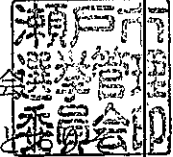 瀬戸市
選挙管理
委員会印
会